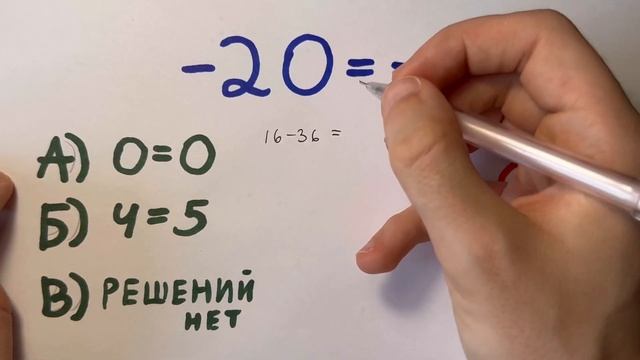 -20=-
16-36=
А) 0=0
Б) 4=5
В) РЕШЕНИЙ
НЕТ